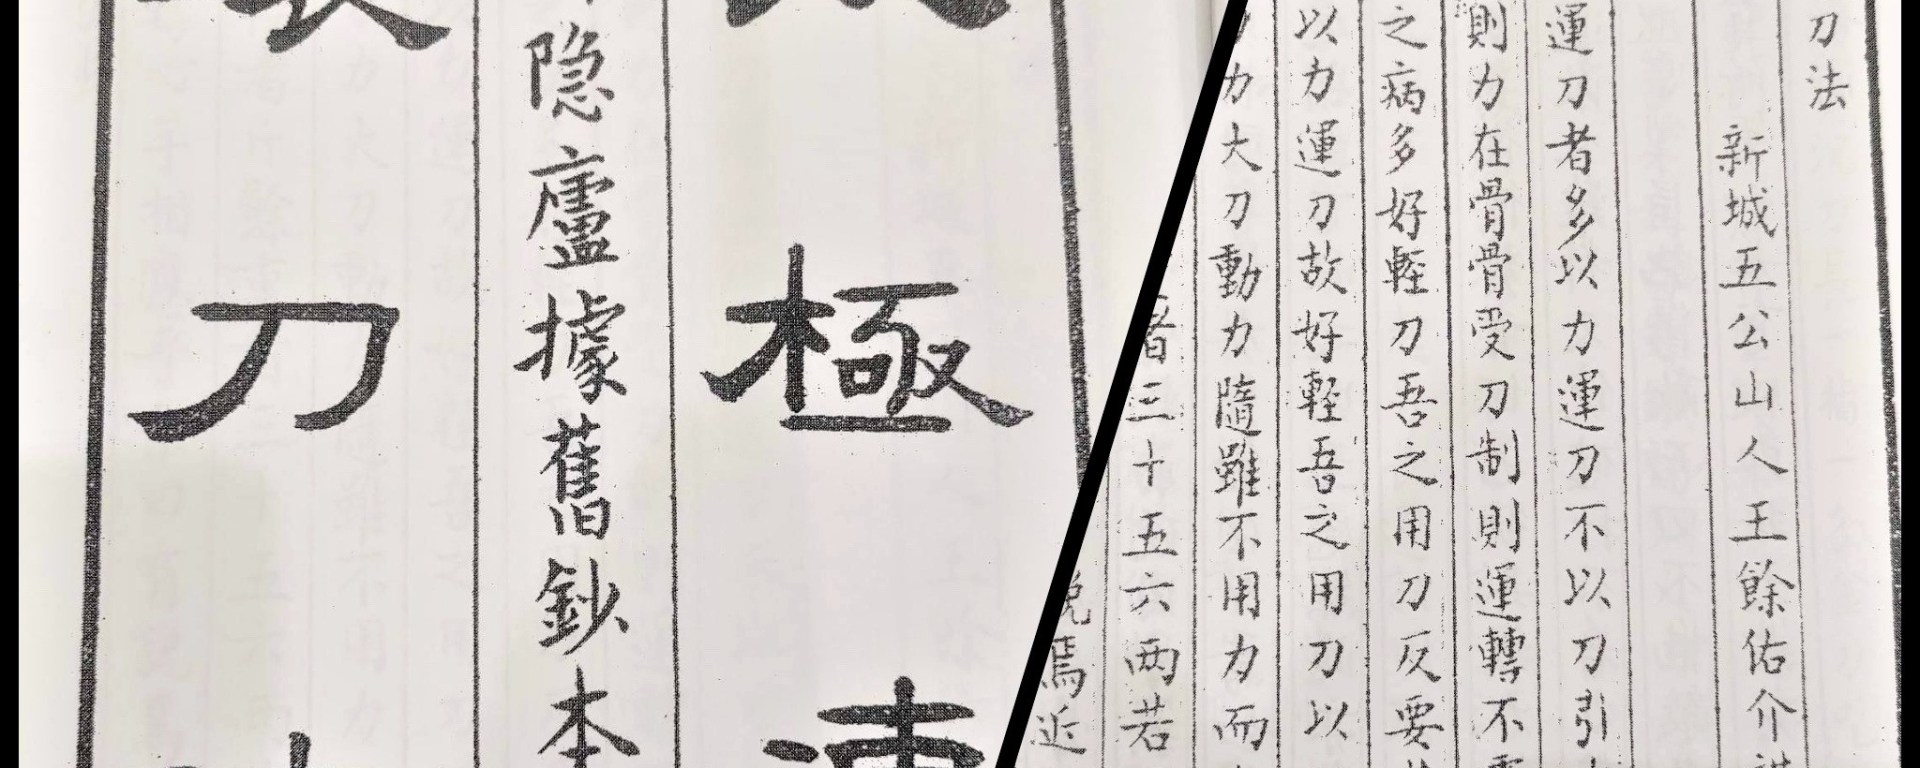 極
隐廬據舊鈔本
刀
刀法
新城五公山人王餘佑介祺
運刀者多以力運刀不以刀引
則力在骨骨受刀制則運轉不
之病多好輕刀吾之用刀反要
以力運刀故好軽吾之用刀以
力大刀動力隨雖不用力而
者三十五六兩若
焉近